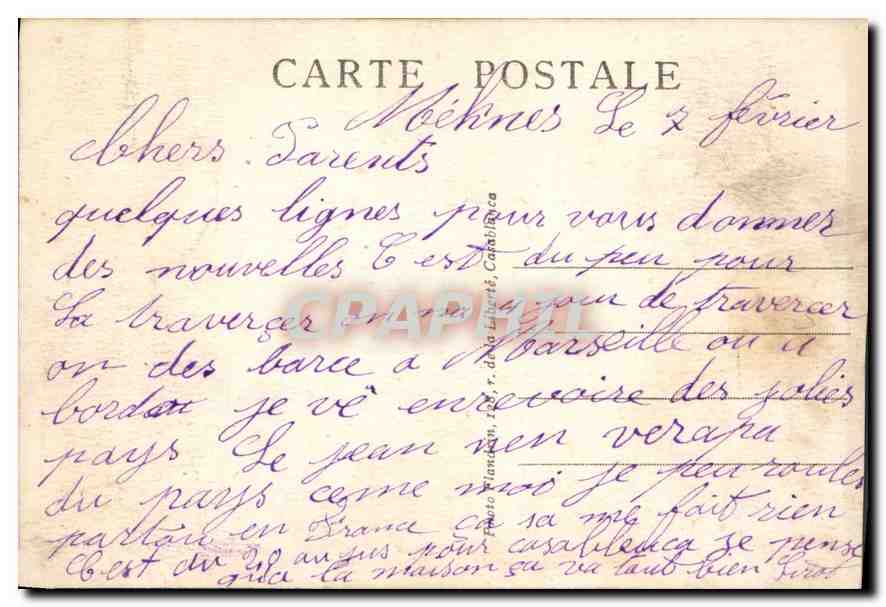 CARTE POSTALE
Méknes Le 7 février
Chers Parents
quelques lignes pour vous donner
des nouvelles C est du peu pour
La traverçer on na 4 jour de traverçer
on des barce a Marseille ou a
bordau je vé en revoire des jolies
pays Le jean nen verapa
du pays ceme moi je peu roules
partou en France ça sa me fait rien
C'est du 28 au jus pour casablenca je pense
qua la maison ça va tout bien
Photo Flandrin, r. de la Liberté, Casablanca
CPAPHIL